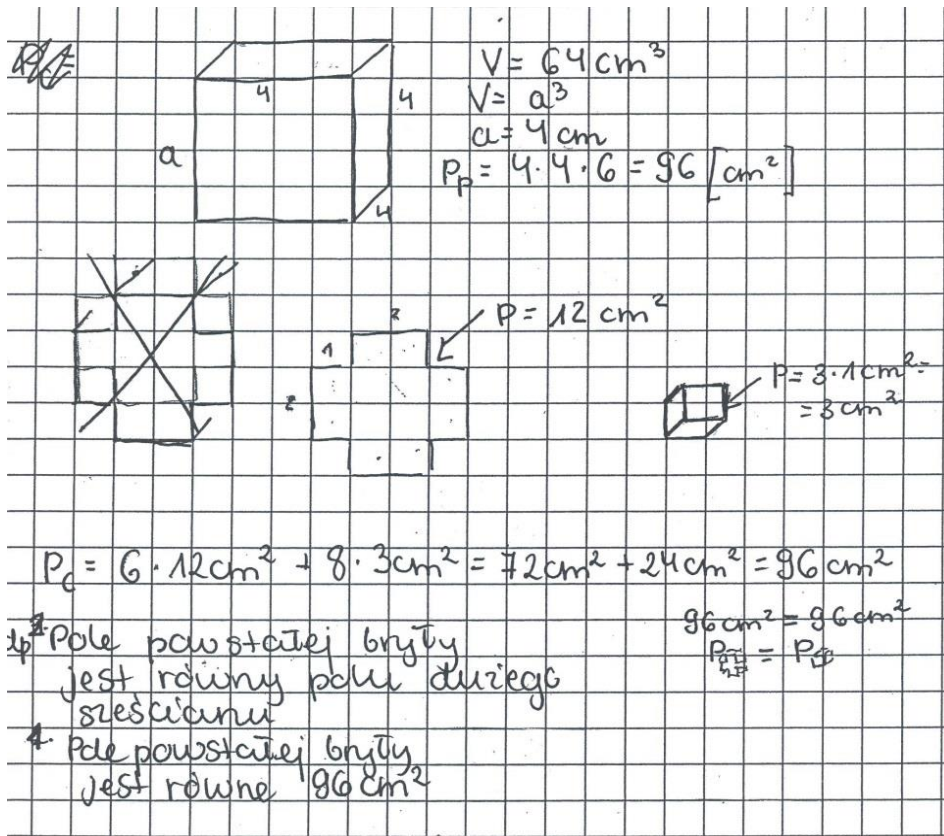 V = 64 cm³
V = a³
a = 4 cm
Pp = 4 · 4 · 6 = 96 [cm²]
4
4
a
4
P = 12 cm²
2
1
2
P = 3 · 1 cm² =
= 3 cm²
Pc = 6 · 12 cm² + 8 · 3 cm² = 72 cm² + 24 cm² = 96 cm²
96 cm² = 96 cm²
P = P
Pole powstałej bryły
jest równy polu dużego
sześcianu
1. Pole powstałej bryły
jest równe 96 cm²